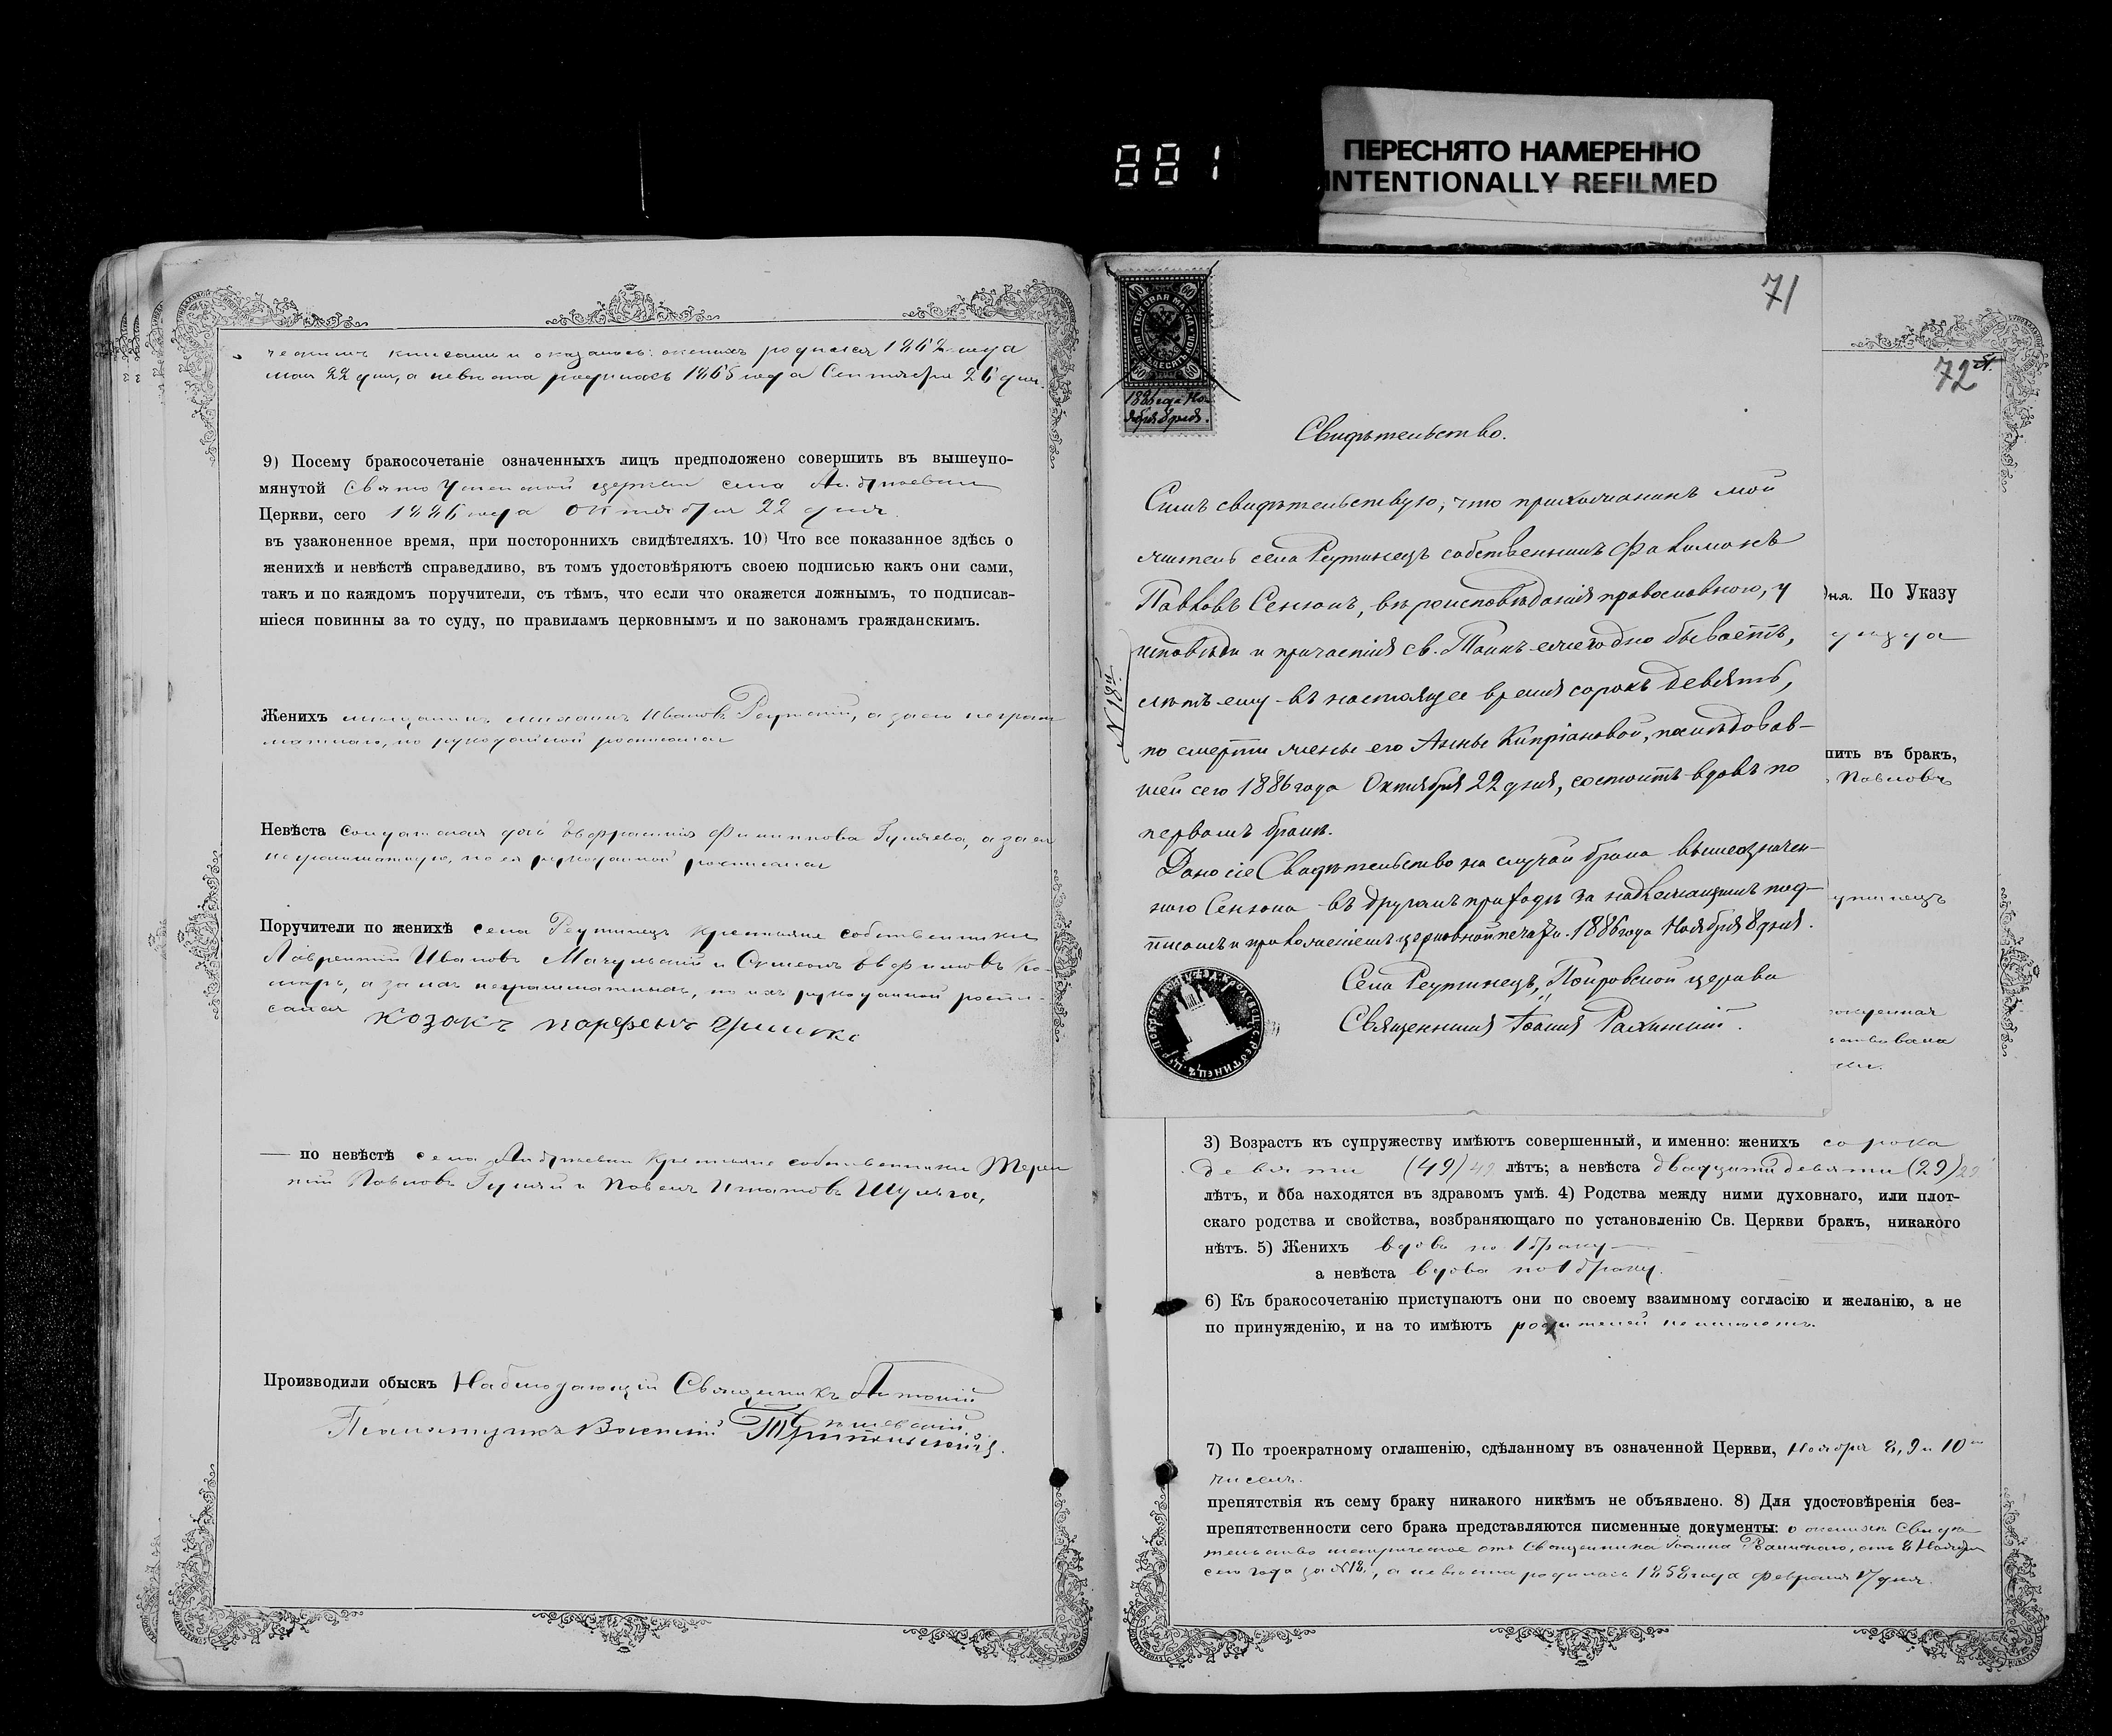 881
ПЕРЕСНЯТО НАМЕРЕННО
INTENTIONALLY REFILMED
оказалось: женихъ родился 1862 года
мая 22 дня, а невѣста родилась 1865 года Сентября 26 дня.
9) Посему бракосочетаніе означенныхъ лицъ предположено совершить въ вышеупо-
мянутой Свято Успенской церкви села Андреевки
Церкви, сего 1886 года Октября 22 дня.
въ узаконенное время, при постороннихъ свидѣтеляхъ. 10) Что все показанное здѣсь о
женихѣ и невѣстѣ справедливо, въ томъ удостовѣряютъ своею подписью какъ они сами,
такъ и по каждомъ поручители, съ тѣмъ, что если что окажется ложнымъ, то подписав-
шіеся повинны за то суду, по правиламъ церковнымъ и по законамъ гражданскимъ.
Женихъ мѣщанинъ Михаилъ Ивановъ Реутскій, а за его неграм
матнаго, по рукоданной росписался
Невѣста солдатская дочь Евфросинія Филиппова Гуляева, а за ея
неграмматную, по ея рукоданной росписался
Поручители по женихѣ села Реутинецъ крестьяне собственники
Лаврентій Ивановъ Мачульскій и Симеонъ Евфимовъ Ко-
маръ, а за ихъ неграмматныхъ, по ихъ рукоданной роспи-
сался козакъ парфенъ гришко
— по невѣстѣ села Андреевки крестьяне собственники Терен
тій Павловъ Гуляй и Павелъ Игнатовъ Шульга,
Производили обыскъ Наблюдающій Священникъ Антоній
Псаломщикъ Василій
71
ГЕРБОВАЯ МАРКА
ШЕСТЬДЕСЯТЪ КОП.
60 60
60 60
1886 года Но-
ября 8 дня.
Свидѣтельство.
Симъ свидѣтельствую, что прихожанинъ мой
житель села Реутинецъ собственникъ Филимонъ
Павловъ Сенюкъ, вѣроисповѣданія православного, у
исповѣди и причастія св. Таинъ ежегодно бываетъ,
лѣтъ ему въ настоящее время сорокъ девять,
по смерти жены его Анны Кипріановой, послѣдовав-
шей сего 1886 года Октября 22 дня, состоитъ вдовъ по
первомъ бракѣ.
Дано сіе Свидѣтельство на случай брака вышеозначен-
ного Сенюка въ другомъ приходѣ за надлежащимъ под-
писомъ и приложеніемъ церковной печати. 1886 года Ноября 8 дня.
Села Реутинецъ, Покровской церкви
Священникъ Іоаннъ
N 18й
72
дня. По Указу
уѣзда
пить въ бракъ,
Павловъ
утинецъ
3) Возрастъ къ супружеству имѣютъ совершенный, и именно: женихъ сорока
девяти (49) 49 лѣтъ; а невѣста двадцати девяти (29) 29
лѣтъ, и оба находятся въ здравомъ умѣ. 4) Родства между ними духовнаго, или плот-
скаго родства и свойства, возбраняющаго по установленію Св. Церкви бракъ, никакого
нѣтъ. 5) Женихъ вдовъ по 1 браку
а невѣста вдова по 1 браку.
6) Къ бракосочетанію приступаютъ они по своему взаимному согласію и желанію, а не
по принужденію, и на то имѣютъ родителей неимѣютъ.
7) По троекратному оглашенію, сдѣланному въ означенной Церкви, Ноября 8, 9 и 10
числъ.
препятствія къ сему браку никакого никѣмъ не объявлено. 8) Для удостовѣренія без-
препятственности сего брака представляются писменные документы: о женихѣ Свидѣ
тельство метрическое отъ Священника Іоанна отъ 8 Ноября
сего года за № 18, а невѣста родилась 1858 года Февраля 17 дня.